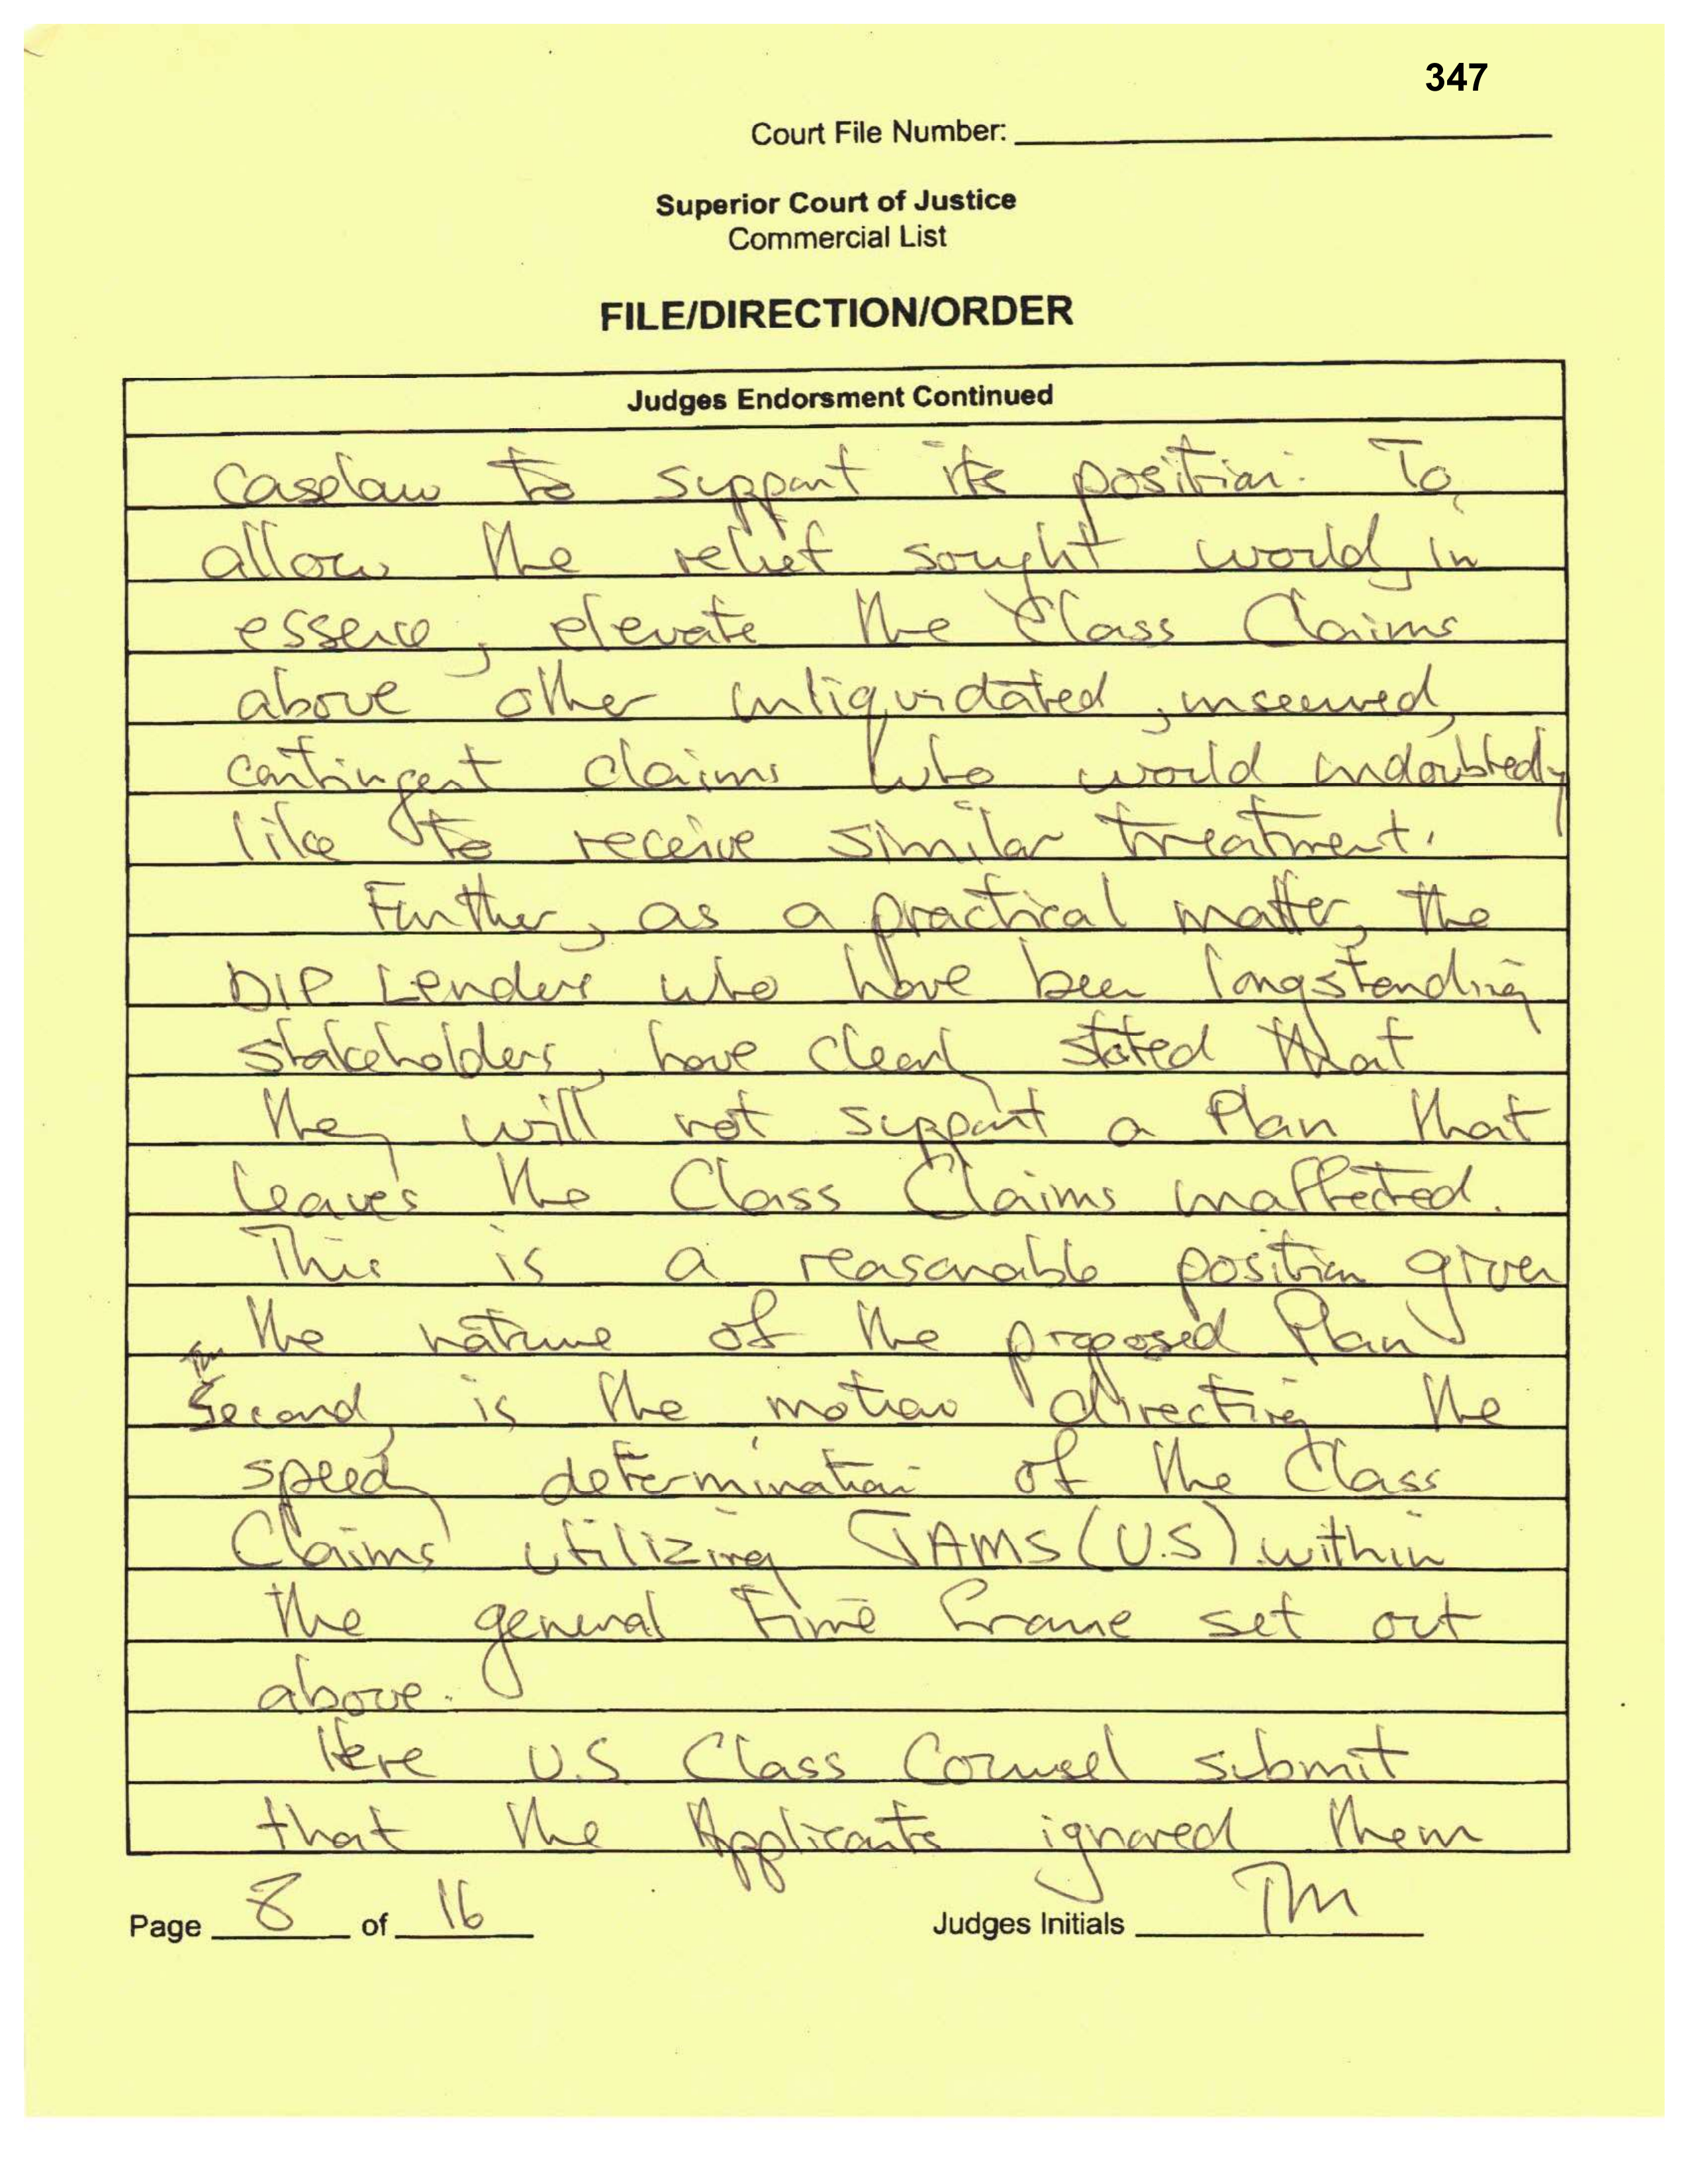 347
Court File Number:
Superior Court of Justice
Commercial List
FILE/DIRECTION/ORDER
Judges Endorsment Continued
caselaw to support its position. To
allow the relief sought would, in
essence, elevate the Class Claims
above other unliquidated, unsecured,
contingent claims who would undoubtedly
like to receive similar treatment.
Further, as a practical matter, the
DIP Lenders who have been longstanding
stakeholders, have clearly stated that
they will not support a Plan that
leaves the Class Claims unaffected.
This is a reasonable position given
the nature of the proposed Plan
Second, is the motion directing the
speedy determination of the Class
Claims utilizing JAMS (U.S) within
the general time frame set out
above.
Here U.S Class Counsel submit
that the Applicants ignored them
Page 8 of 16
Judges Initials TM